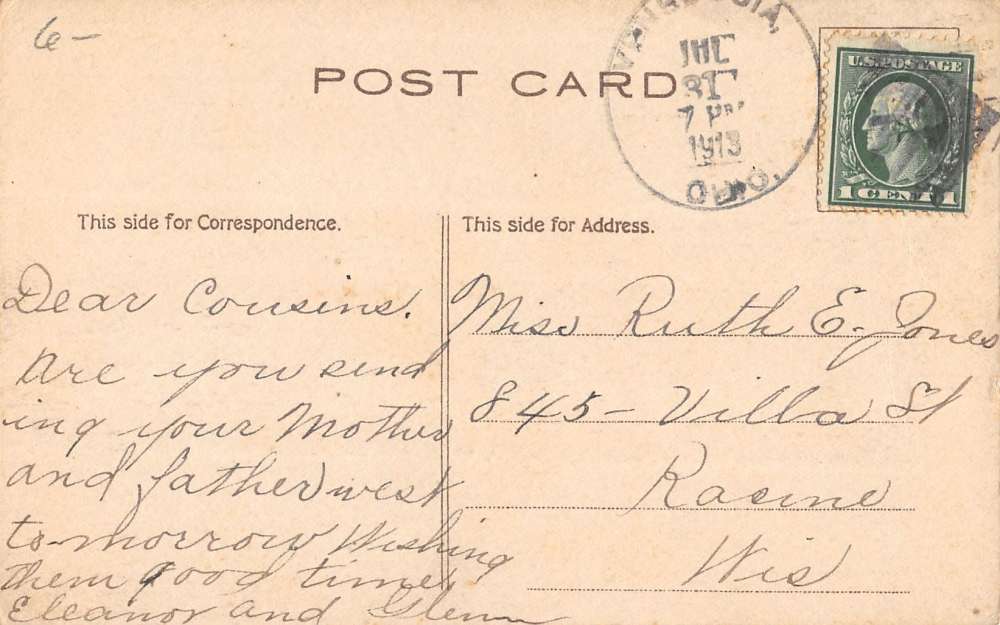 6-
POST CARD
JUL
31
7 PM
1913
OHIO.
U.S. POSTAGE
1 CENT 1
This side for Correspondence.
Dear Cousins.
Are you send
ing your Mother
and father west
to-morrow Wishing
them good times
Eleanor and Glenn
This side for Address.
Miss Ruth E. Jones
845- Villa St
Racine
Wis